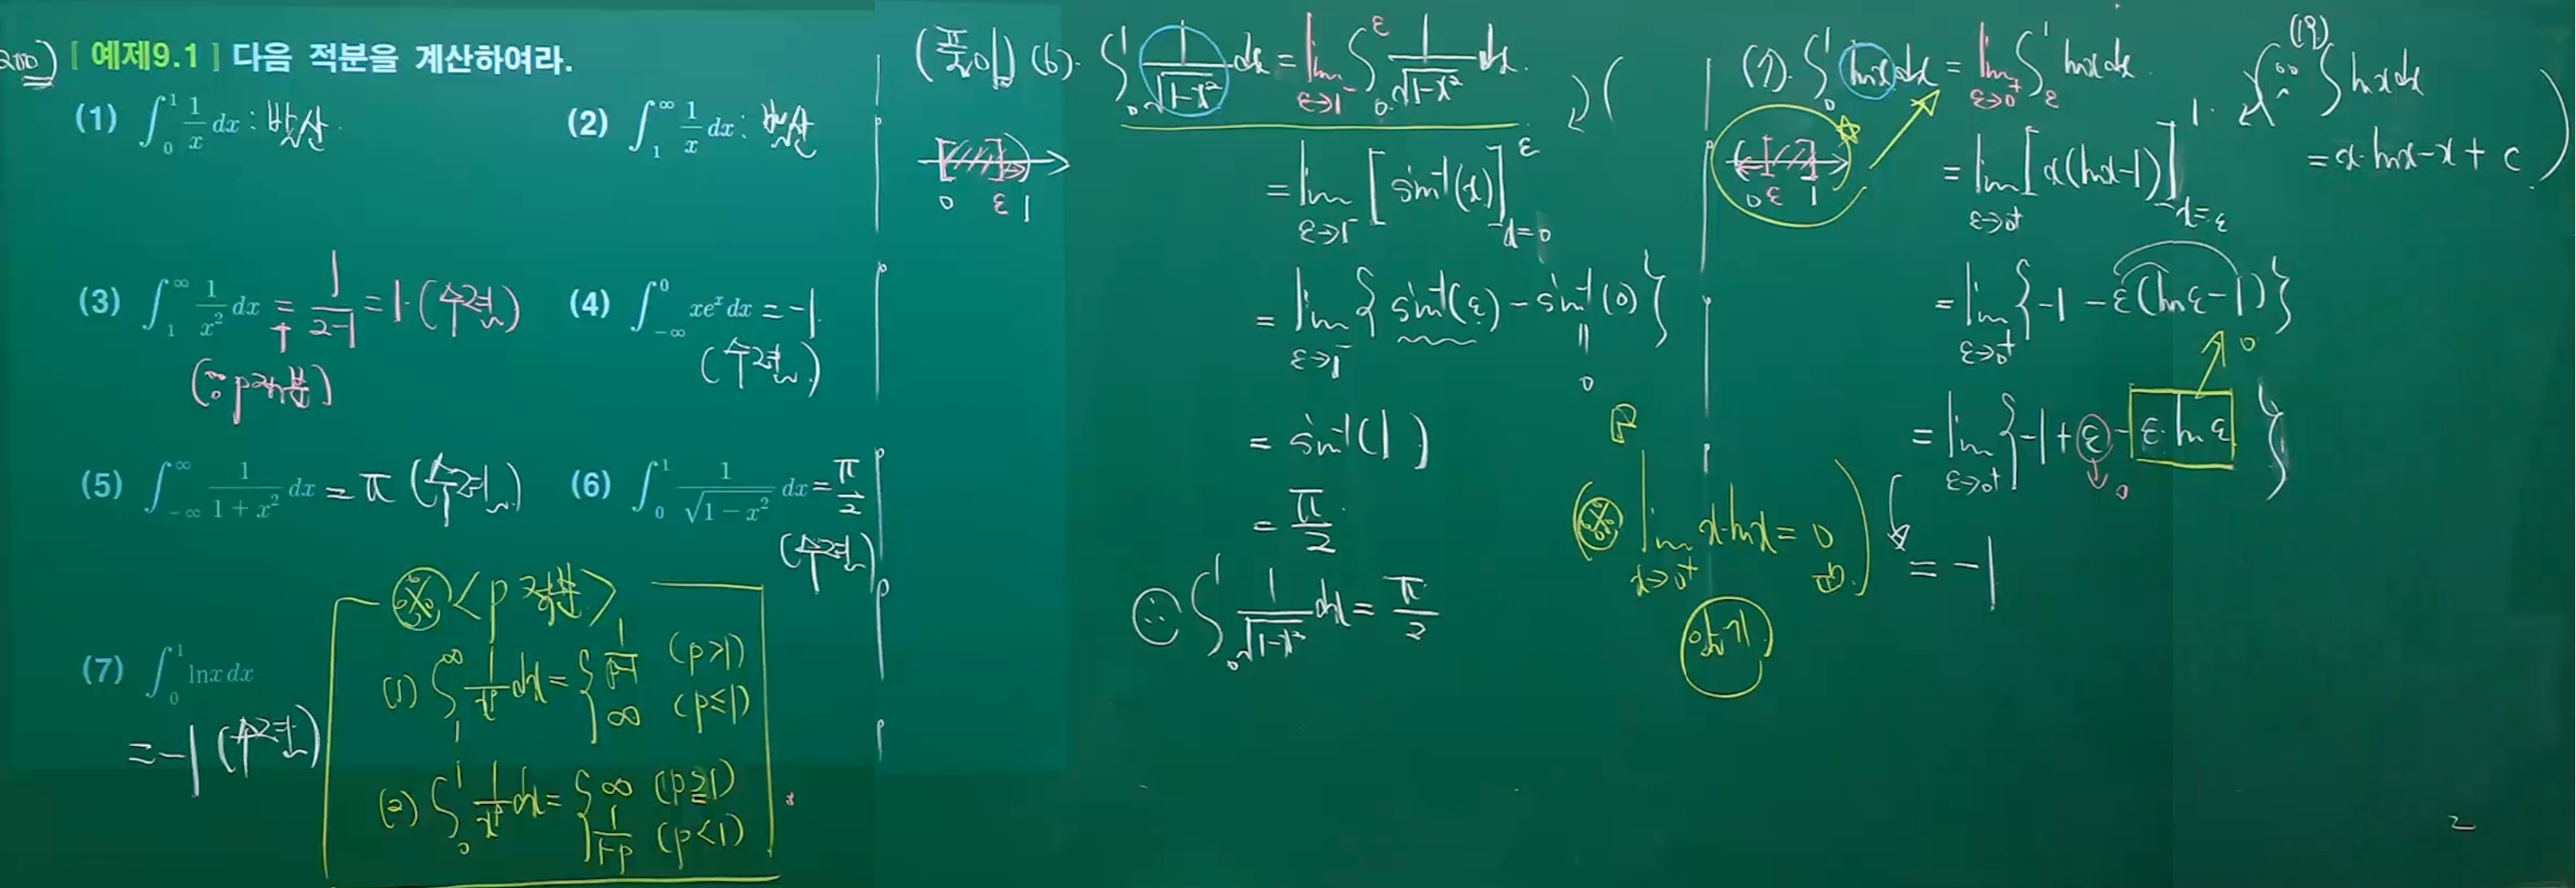 200) [ 예제9.1 ] 다음 적분을 계산하여라.
(1) ∫₀¹ 1/x dx : 발산.
(2) ∫₁^∞ 1/x dx : 발산
(3) ∫₁^∞ 1/x² dx = 1/(2-1) = 1. (수렴)
(∵ p적분)
(4) ∫_{-∞}^0 xe^x dx = -1.
(수렴)
(5) ∫_{-∞}^∞ 1/(1+x²) dx = π (수렴)
(6) ∫₀¹ 1/√(1-x²) dx = π/2
(수렴)
(7) ∫₀¹ lnx dx
= -1 (수렴)
※ <p적분>
(1) ∫₁^∞ 1/x^p dx = { 1/(p-1) (p>1)
∞ (p≤1)
(2) ∫₀¹ 1/x^p dx = { ∞ (p≧1)
1/(1-p) (p<1)
(6). ∫₀¹ 1/√(1-x²) dx = lim_{ε→1⁻} ∫₀^ε 1/√(1-x²) dx.
0 ε 1
= lim_{ε→1⁻} [ sin⁻¹(x) ]_{x=0}^ε
= lim_{ε→1⁻} { sin⁻¹(ε) - sin⁻¹(0) }
=
0
= sin⁻¹(1)
= π/2
∴ ∫₀¹ 1/√(1-x²) dx = π/2
(7). ∫₀¹ lnx dx = lim_{ε→0⁺} ∫_ε^1 lnx dx.
(∵ ∫ lnx dx
= x·lnx - x + C.)
0 ε 1
= lim_{ε→0⁺} [ x(lnx-1) ]_{x=ε}^1
= lim_{ε→0⁺} { -1 - ε(lnε-1) }
0
= lim_{ε→0⁺} { -1 + ε - ε·lnε }
0
(※ lim_{x→0⁺} x·lnx = 0)
암기
= -1
2